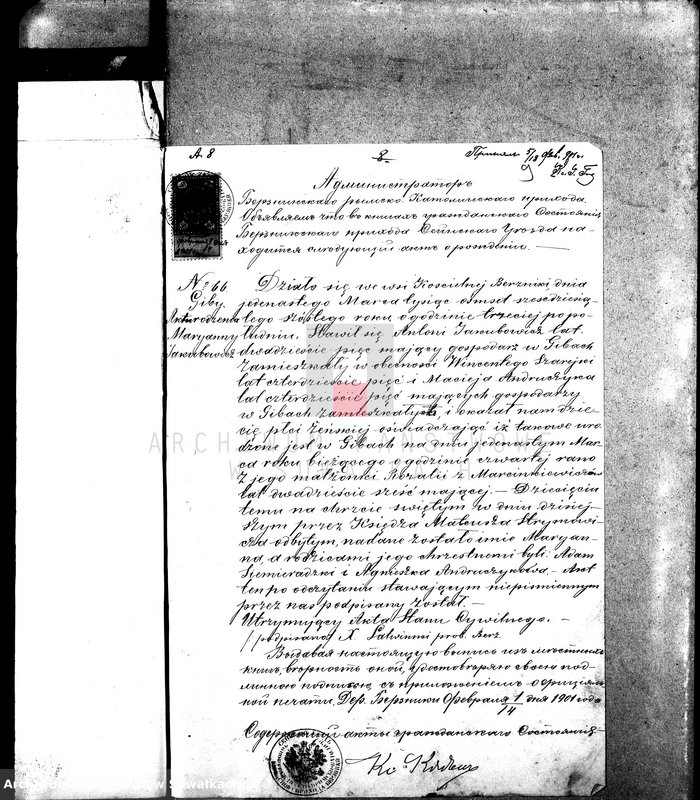 А. 8
8
Принял 5/18 фев. 901 г.
Администраторъ
Бержникскаго римско Католическаго прихода
Объявляетъ что въ книгахъ гражданскаго Состоянія
Бержникскаго прихода Сейнскаго Уѣзда на-
ходится слѣдующій актъ о рожденіи. —
№ 66
Giby.
Akt urodzenia
Maryanny
Jakubowicz
Działo się we wsi Kościelnej Berzniki dnia
jedenastego Marca tysiąc ośmset sześćdziesią-
tego szóstego roku o godzinie trzeciej po po-
łudniu. Stawił się Antoni Jakubowicz lat
dwadzieścia pięć mający gospodarz w Gibach
zamieszkały w obecności Wincentego Szarejki
lat czterdzieście pięć i Macieja Andruczyka
lat czterdzieście pięć mających gospodarzy
w Gibach zamieszkałych, i okazał nam dzie-
cię płci żeńskiej oświadczając iż takowe uro-
dzone jest w Gibach na dniu jedenastym Mar-
ca roku bieżącego o godzinie czwartej rano
z jego małżonki Rozalii z Marcinkiewiczów
lat dwadzieście sześć mającej. — Dziecięciu
temu na chrzcie świętym w dniu dzisiej-
szym przez Księdza Mateusza Strymowi-
cza odbytym, nadane zostało imie Maryan-
na, a rodzicami jego chrzestnemi byli: Adam
Siemieradzki i Agnieszka Andruczykowa. — Akt
ten po odczytaniu stawającym niepiśmiennym
przez nas podpisany został. —
Utrzymujący Akta Stanu Cywilnego. —
/podpisano/ X. prob. Berz.
Выдавая настоящую выпись изъ мѣстныхъ
книгъ, вѣрность оной, удостовѣряю своею под-
линною подписью съ приложеніемъ оффиціаль-
ной печати. Дер. Бержники Февраля 1/14 дня 1901 года
Содержащій акты гражданскаго Состоянія
Кс.
ARCHIWUM PAŃSTWOWE
W SUWAŁKACH